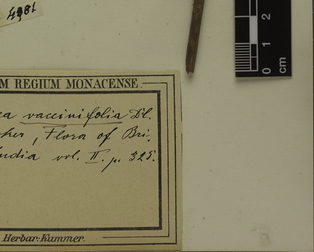 4981
M REGIUM MONACENSE
ea vaccinifolia Dl.
cher, Flora of Bri.
India vol. II. p. 325.
Herbar. Kummer.
0 1 2
cm